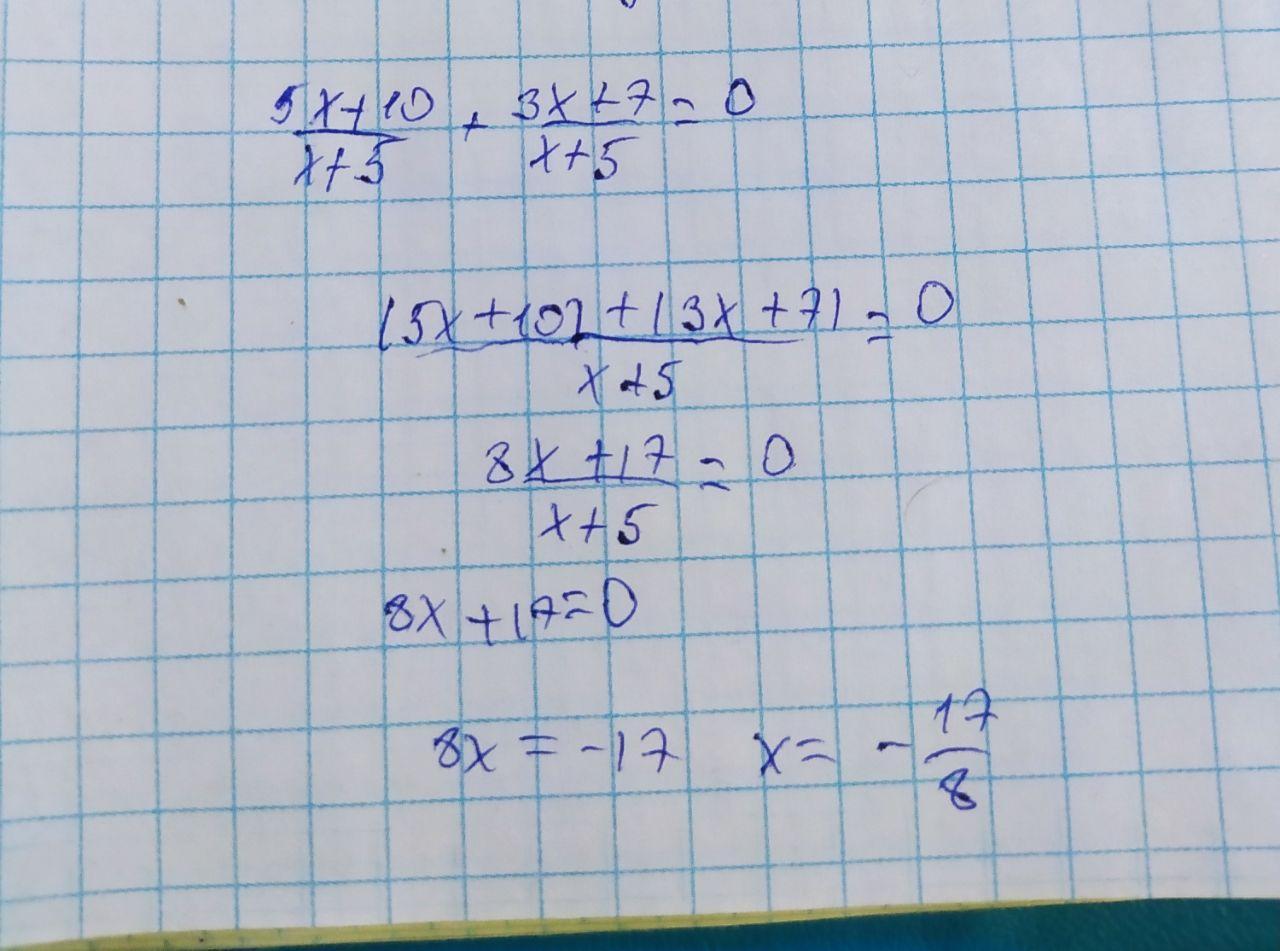 (5x+10)/(x+5) + (3x+7)/(x+5) = 0
((5x+10)+(3x+7))/(x+5) = 0
(8x+17)/(x+5) = 0
8x+17=0
8x = -17 x = -17/8